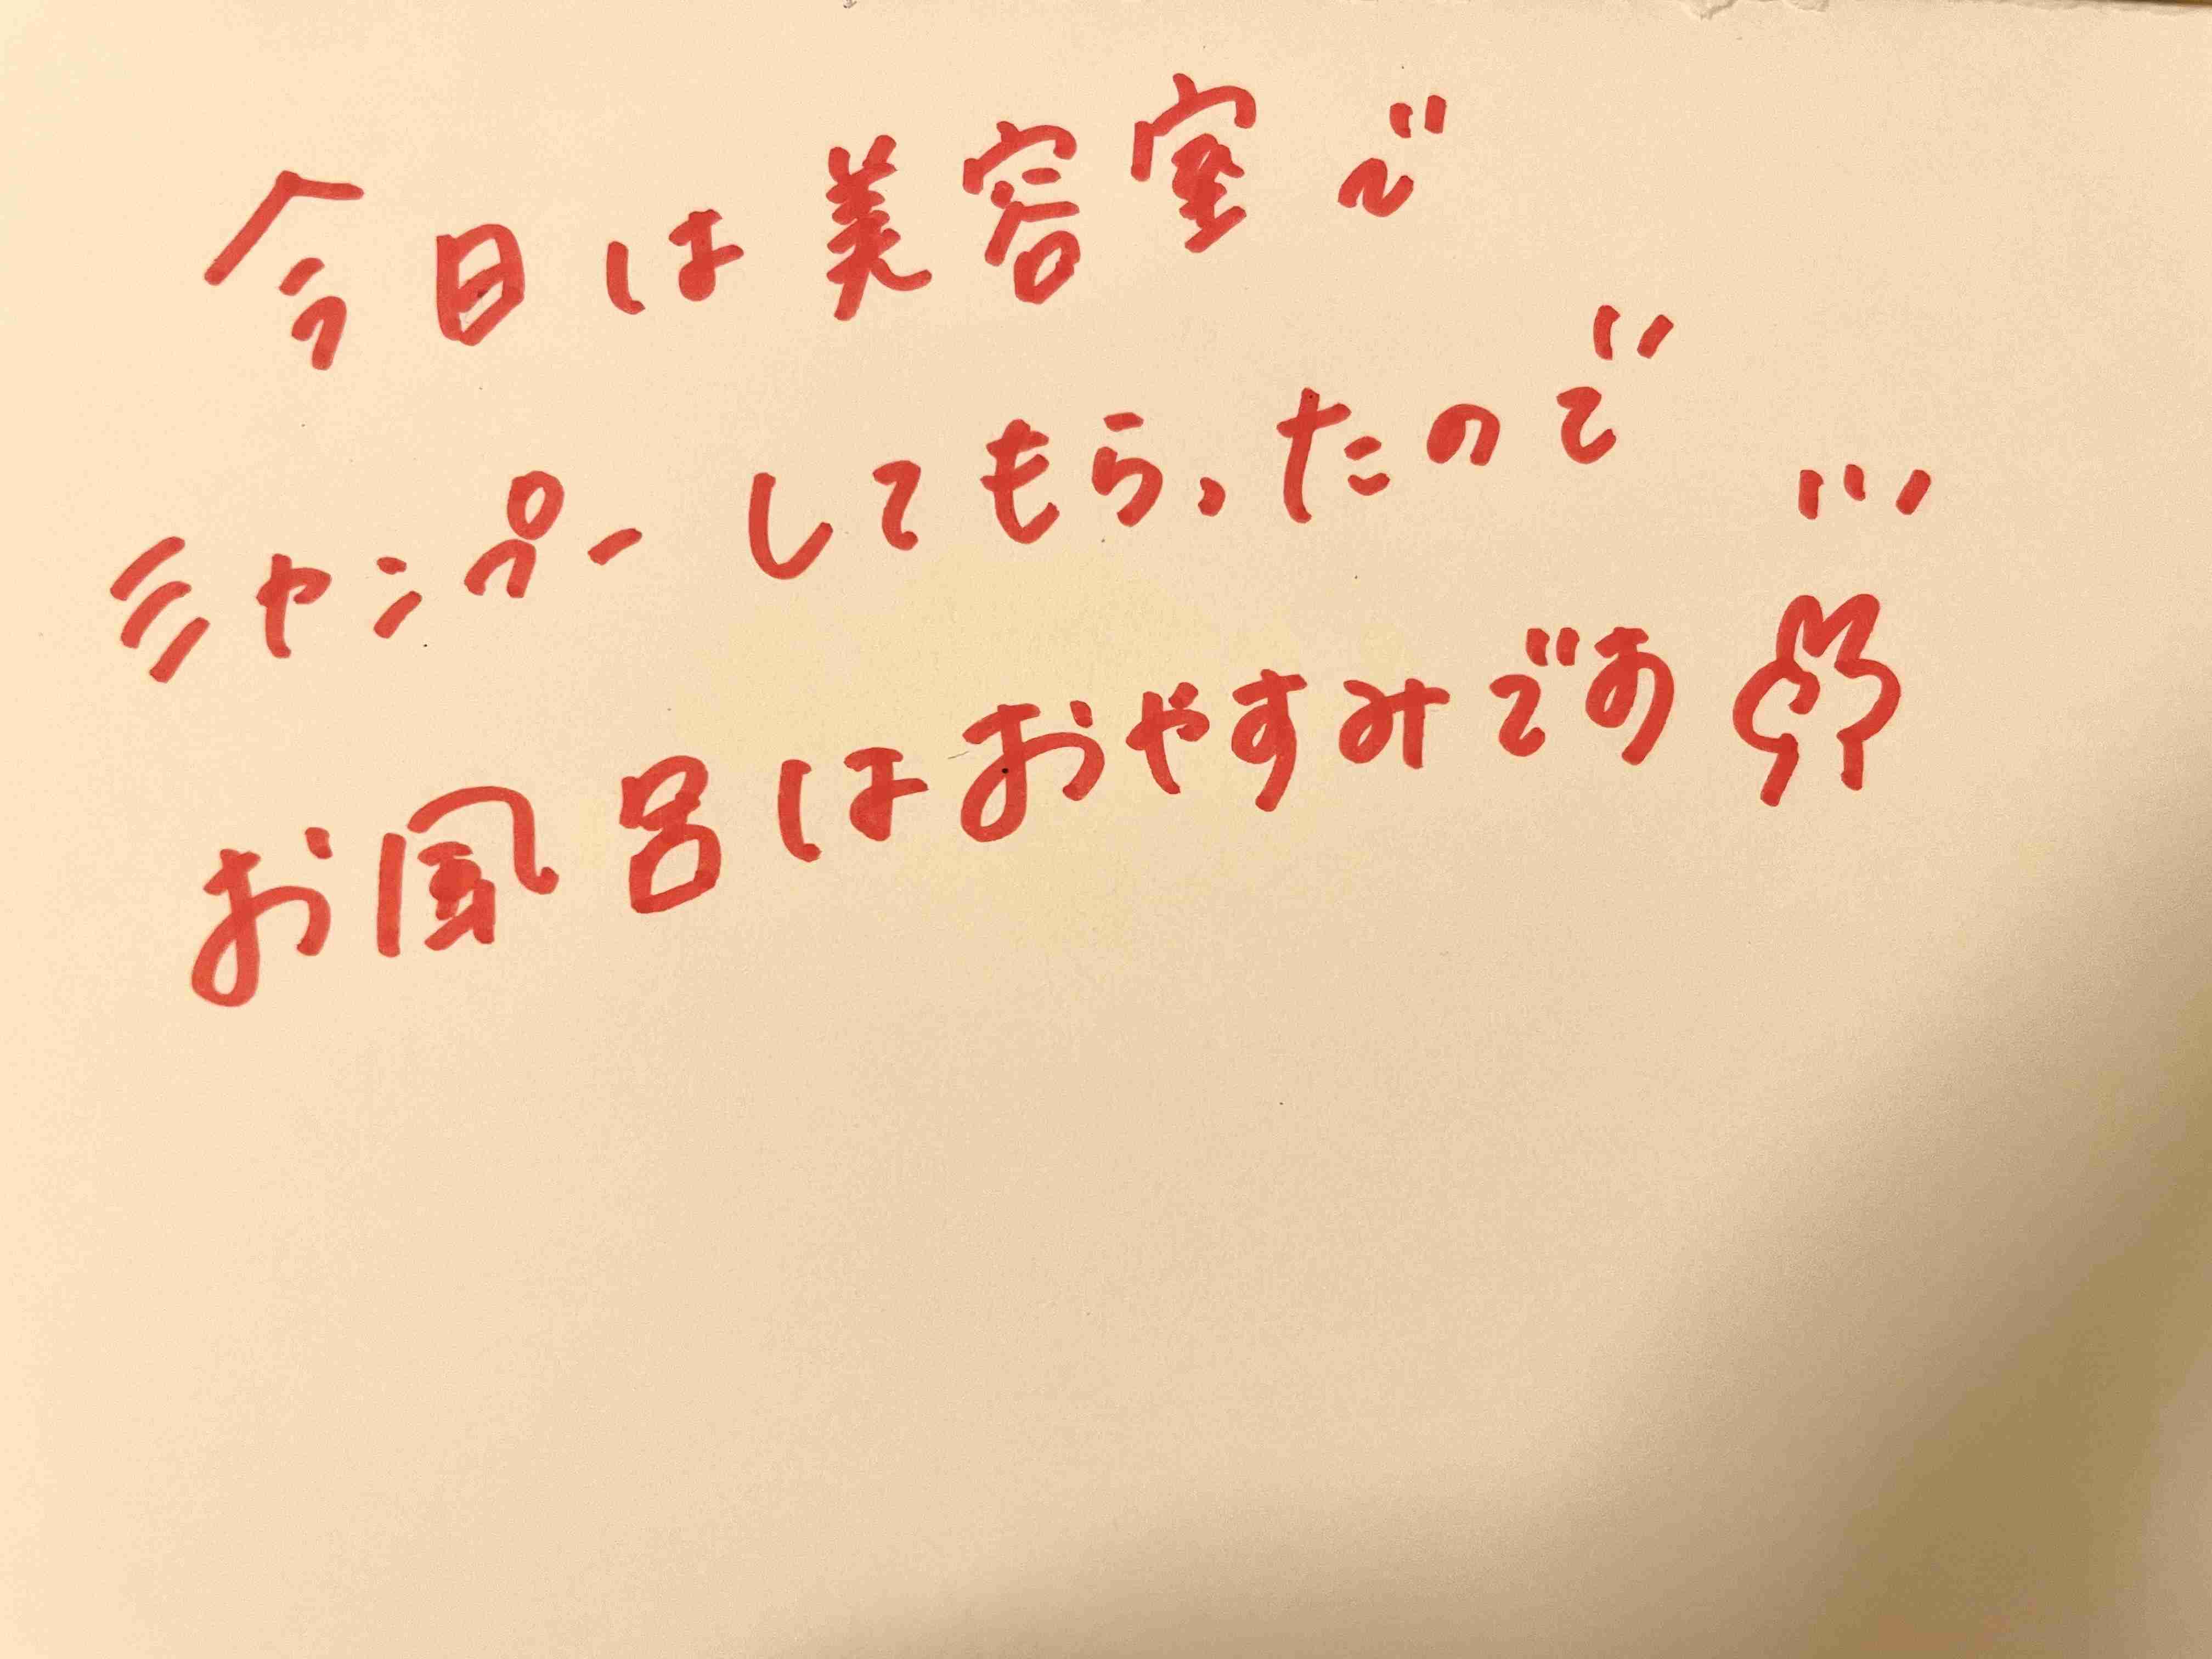 今日は美容室で
シャンプーしてもらったので
お風呂はおやすみです